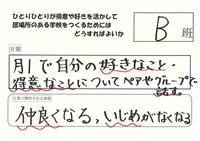 ひとりひとりが得意や好きを活かして
居場所のある学校をつくるためには
どうすればよいか
B 班
方策
月1で自分の好きなこと・
得意なことについてペアやグループで
話す。
方策で期待される効果
仲良くなる,いじめがなくなる